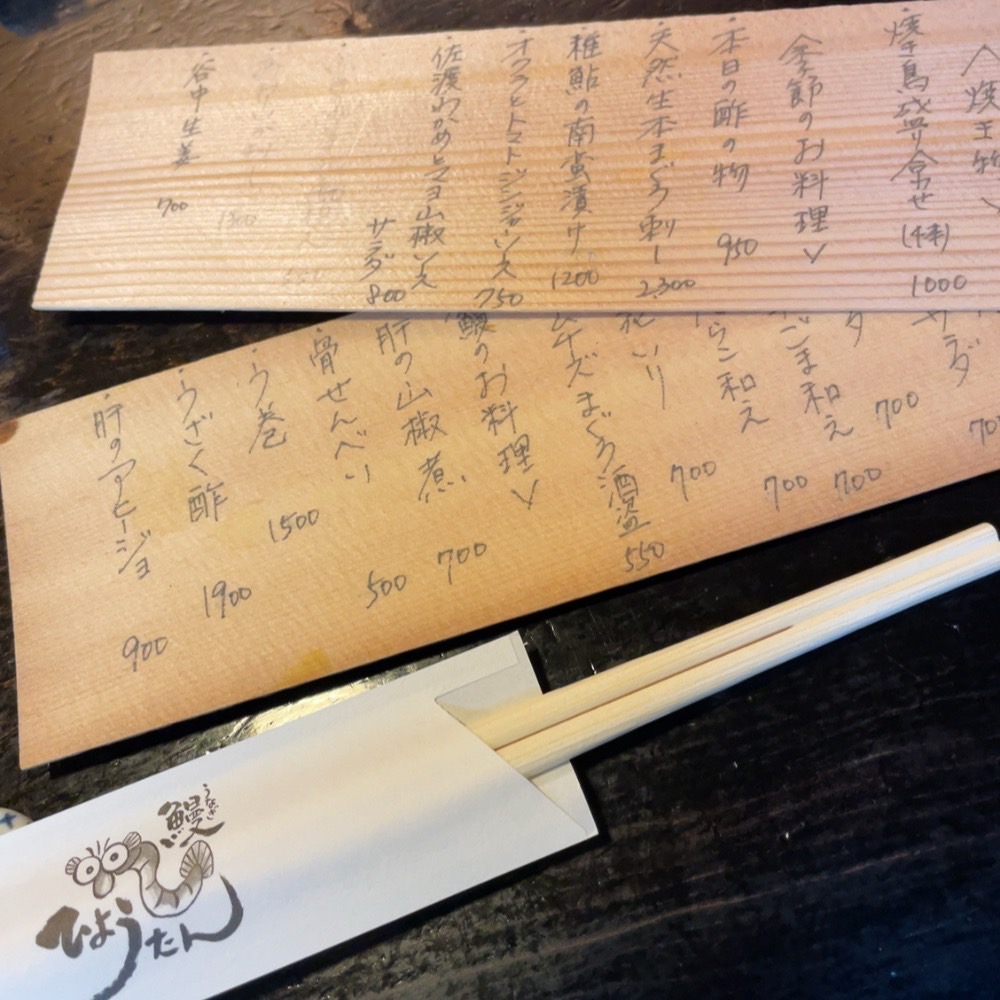 〈焼き物〉
焼き鳥盛り合わせ(4本) 1000
〈季節のお料理〉
・本日の酢の物 950
・天然生本まぐろ刺し 2,300
稚鮎の南蛮漬け 1200
・オクラとトマトジンジャー 750
・佐渡わかめ 山椒
サラダ 800
・谷中生姜 700
サラダ
700
ごま和え 700
和え 700
700
まぐろ酒盗 550
鰻のお料理〉
肝の山椒煮 700
・骨せんべい 500
・う巻 1500
・うざく酢 1900
・肝のアヒージョ 900
うなぎ
鰻
ひょうたん